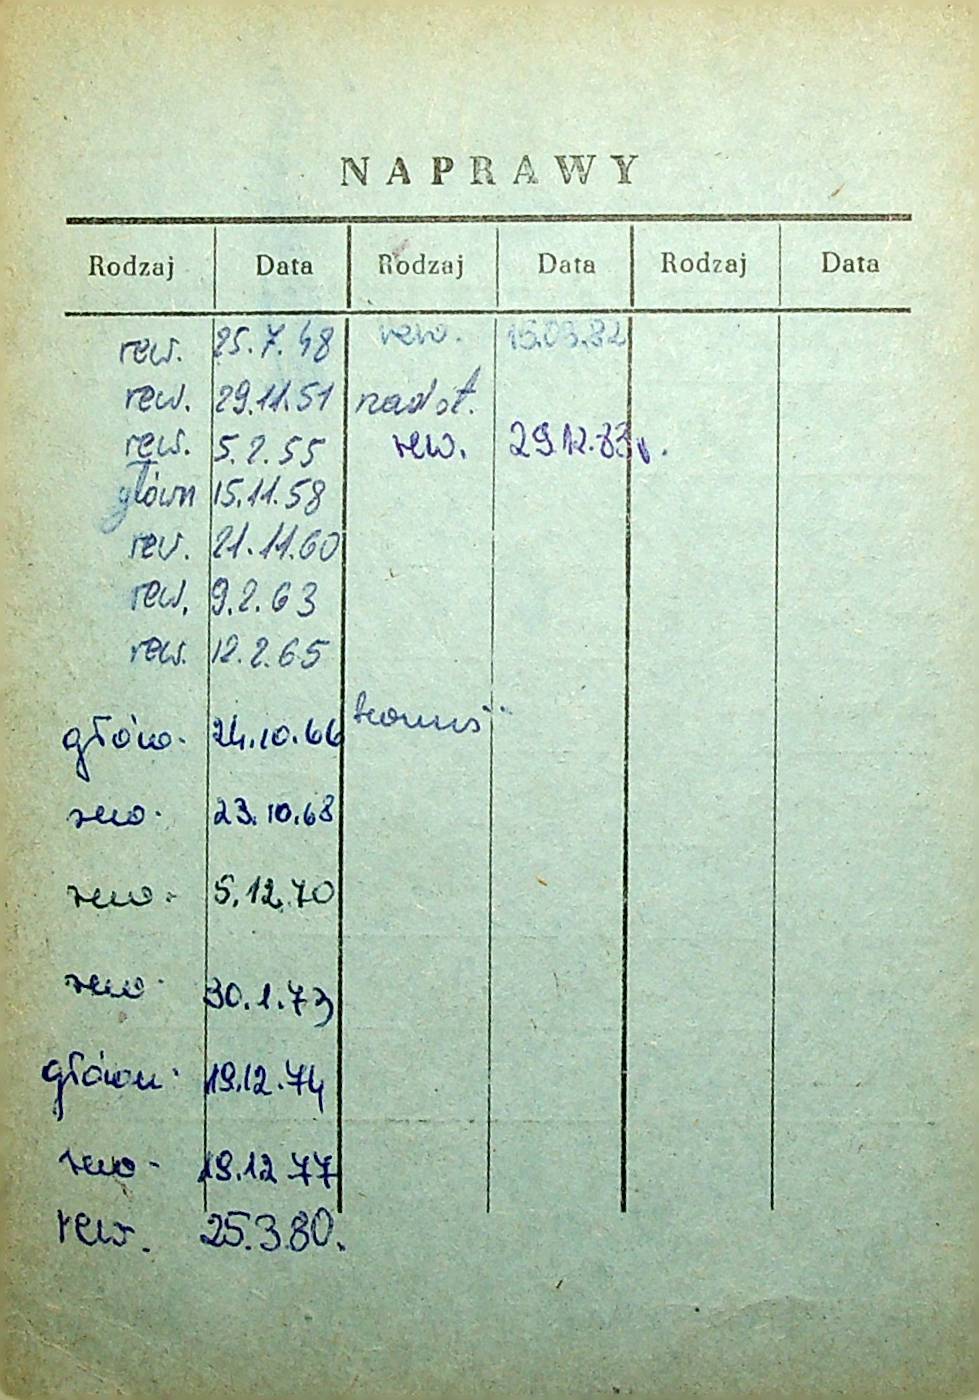 NAPRAWY
Rodzaj Data Rodzaj Data Rodzaj Data
rew. 25.7.48 rew. 15.03.82
rew. 29.11.51
rew. 5.2.55 rew. 29.12.83r.
główn 15.11.58
rew. 21.11.60
rew. 9.2.63
rew. 12.2.65
główn. 24.10.66
rew. 23.10.68
rew. 5.12.70
rew. 30.1.73
główn. 19.12.74
rew. 19.12 77
rew. 25.3.80.